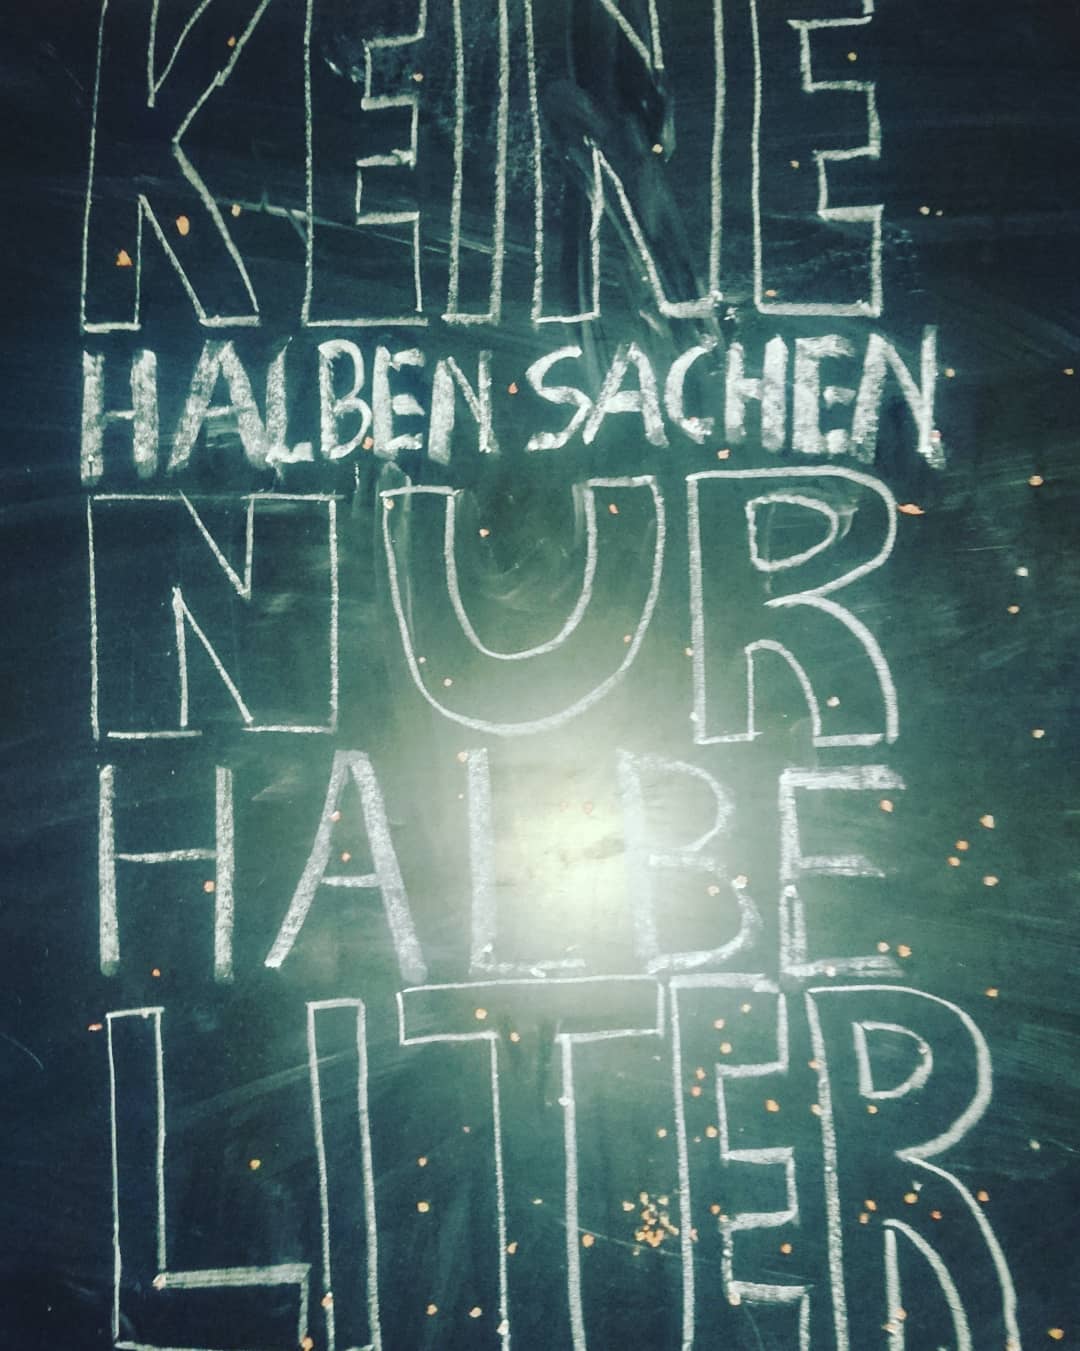 KEINE
HALBEN SACHEN
NUR
HALBE
LITER